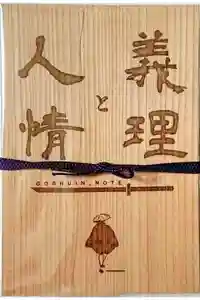 義理
と
人情
GOSHUIN_NOTE